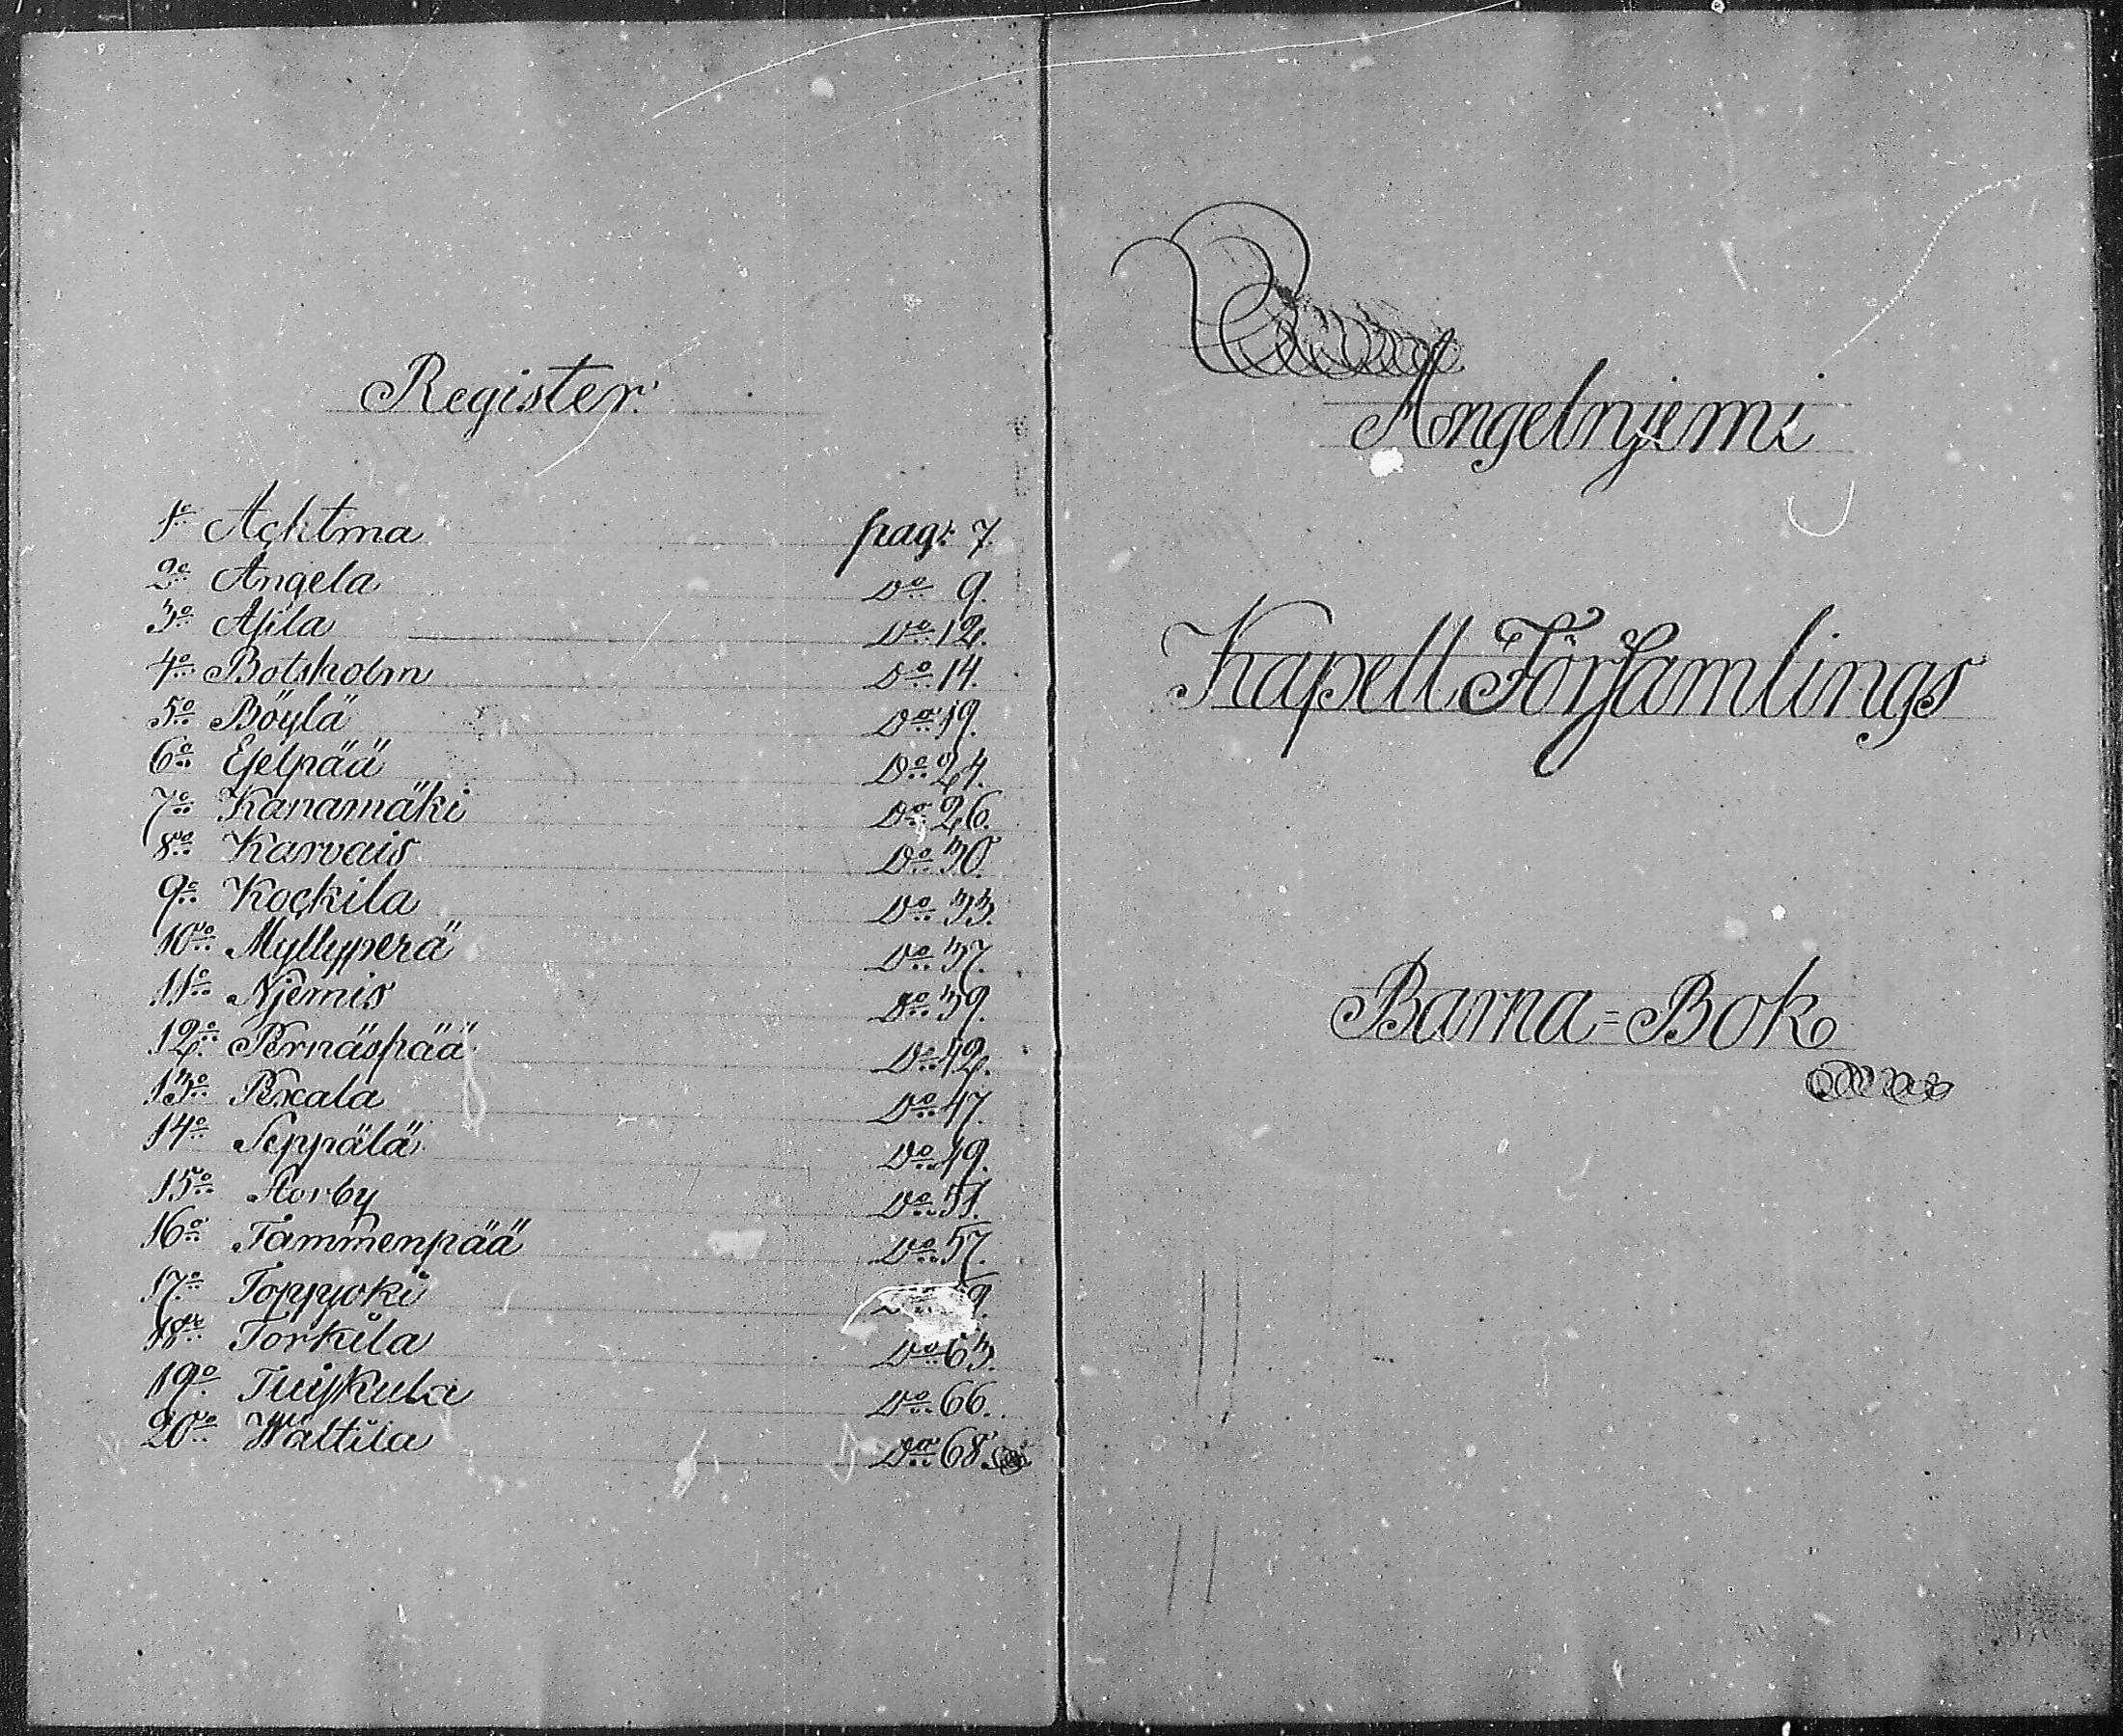 Register.
1o Açktma pag: 7.
2o Angela Do 9.
3o Ajila Do 12.
4o Botsholm Do 14.
5o Böylä Do 19.
6o Ejelpää Do 24.
7o Kanamäki Do 26.
8vo Karvais Do 30
9o Koçkila Do 33.
10mo Myllyperä Do 37.
11o Njemis Do 39.
12o Pernäspää Do 42.
13o Pexala Do 47.
14o Seppälä Do 49.
15o Storby Do 51.
16o Tammenpää Do 57.
17o Toppjoki 9.
18vo Torkila Do 63.
19o Tuiskula Do 66.
20mo Wältila Do 68.
Angelnjemi
Kapell Församlings
Barna=Bok